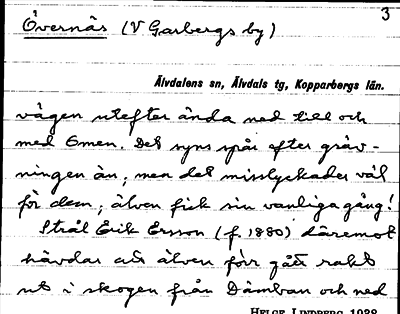 3
Övernäs (V Garbergs by)
Älvdalens sn, Älvdals tg, Kopparbergs län.
vägen utefter ända ned till och
med Emen. Det syns spår efter gräv-
ningen än; men det misslyckades väl
för dem; älven fick sin vanliga gång!
Strål Erik Ersson (f 1880) däremot
hävdar att älven förr gått rakt
ut i skogen från Dämban och ned
HELGE LINDBERG 1938